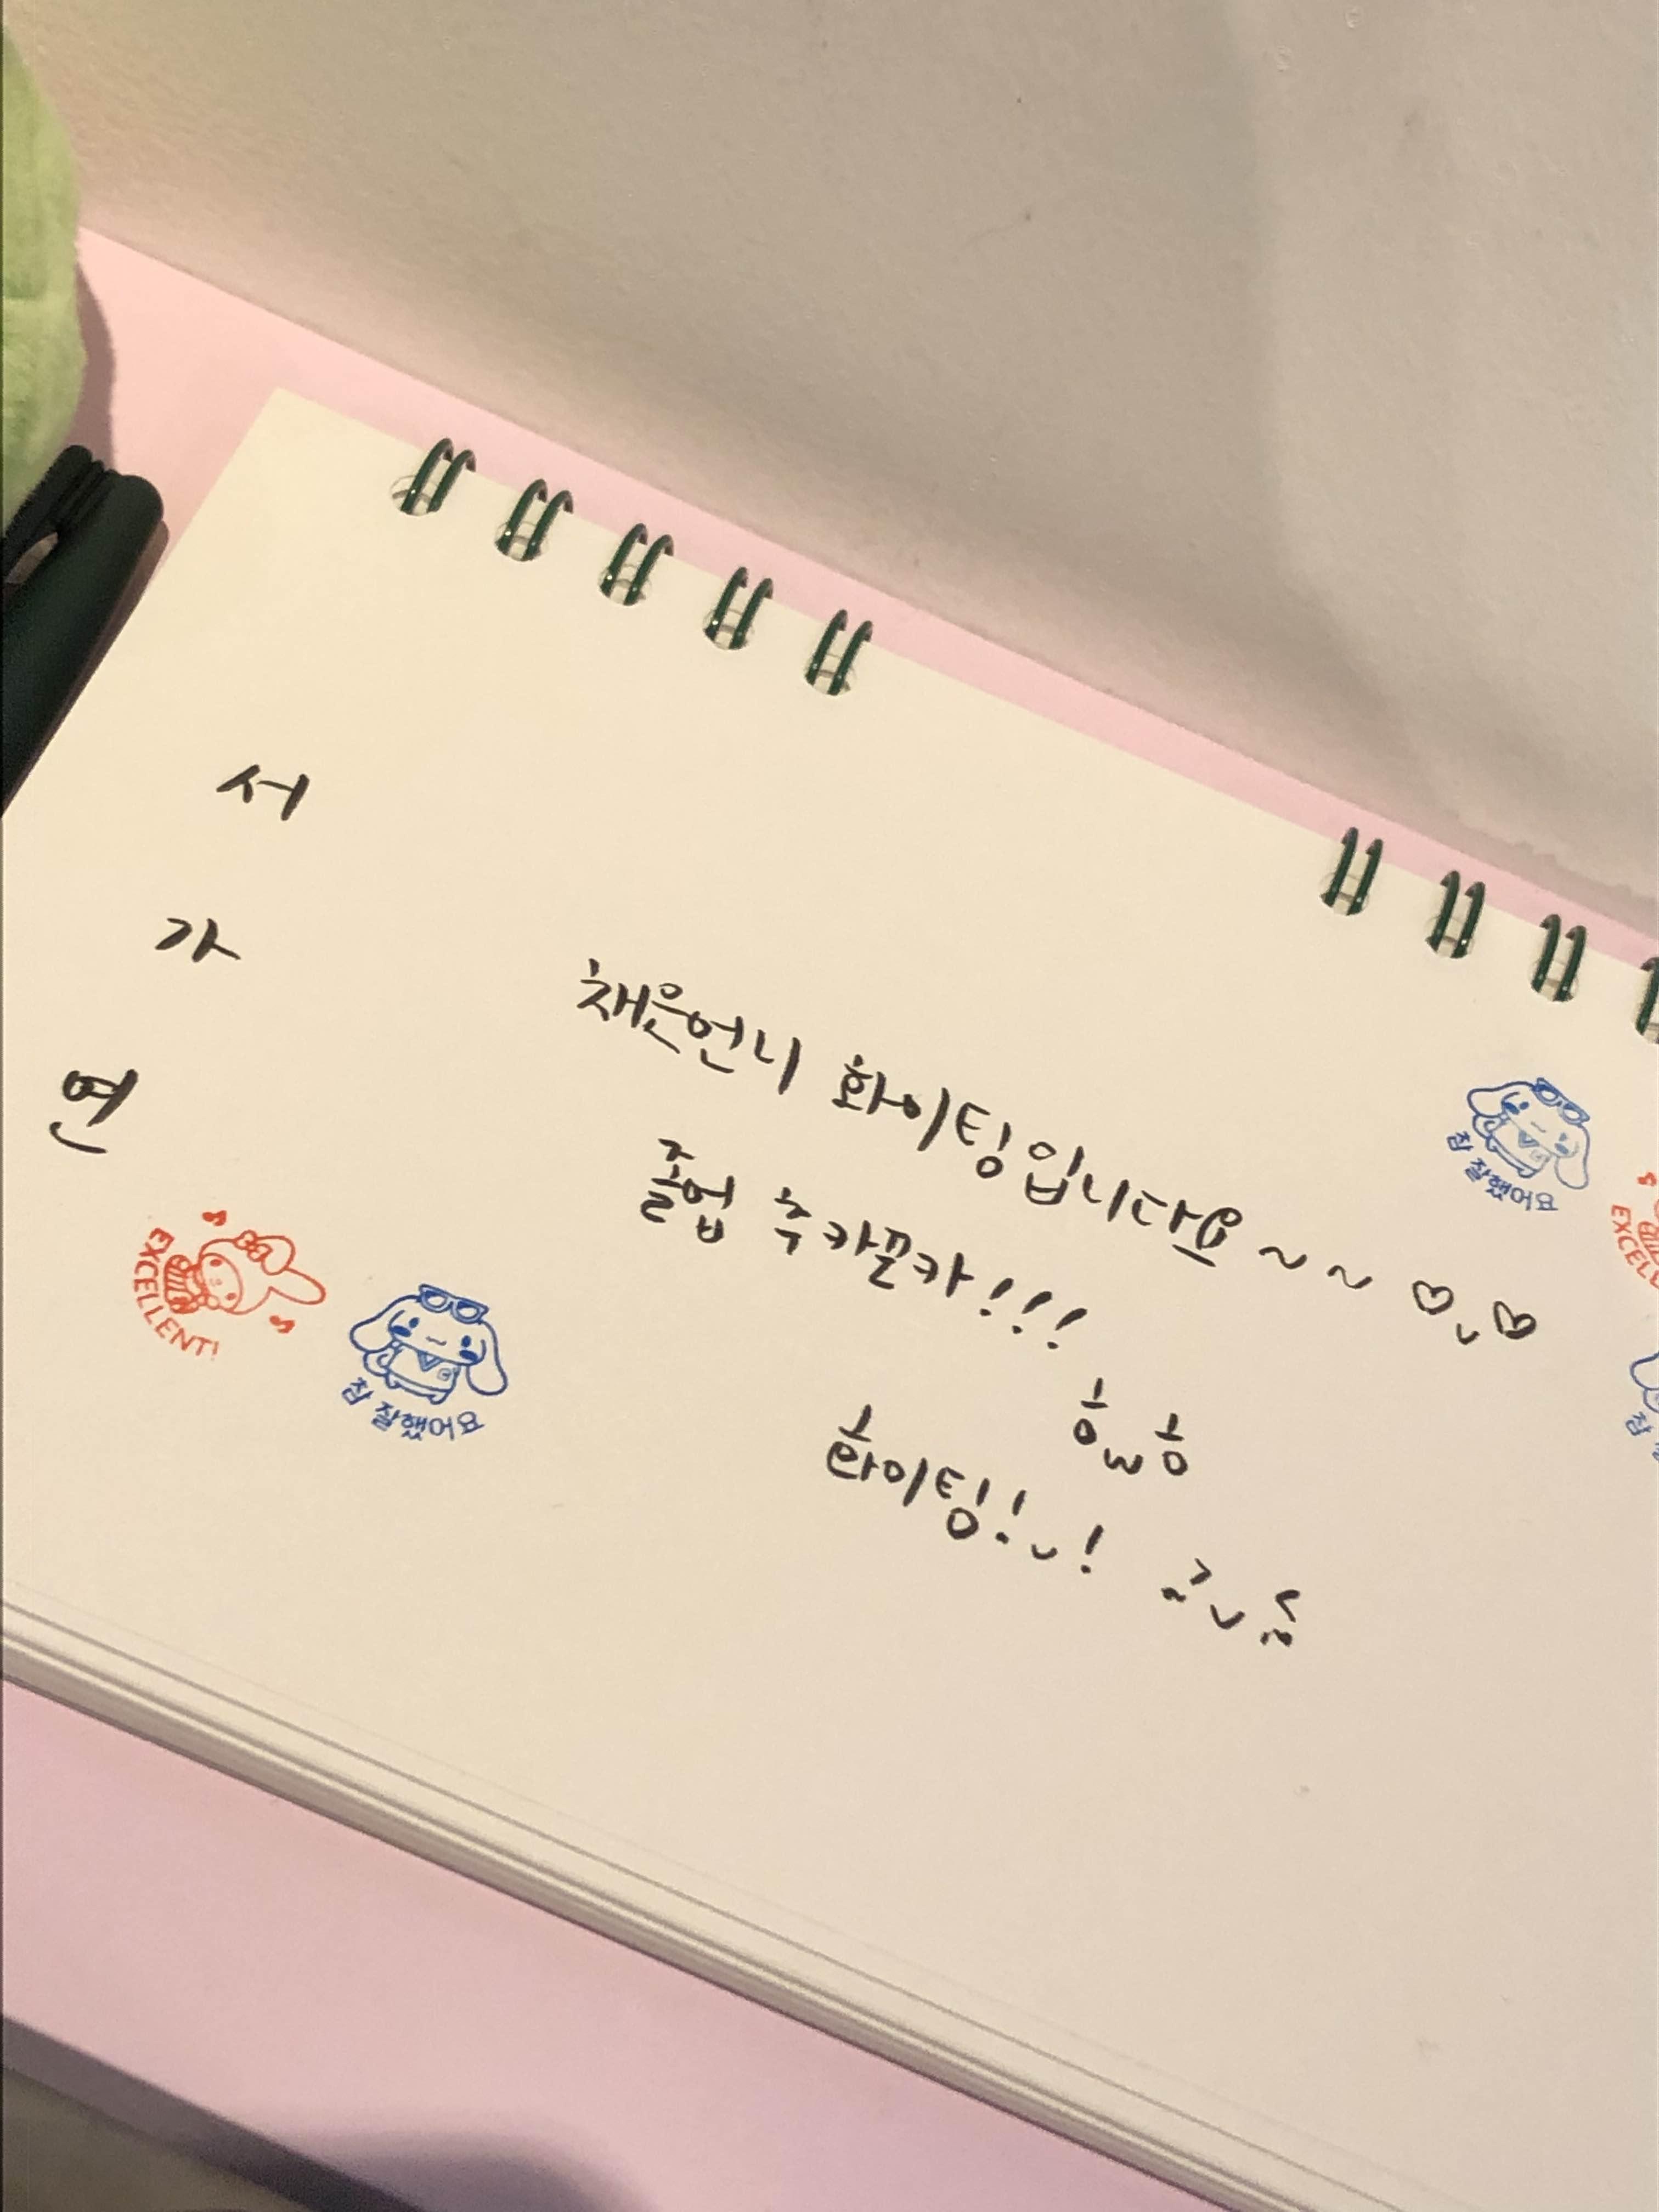 서
가
연
채은언니 화이팅입니다요~~ ♡ᴗ♡
졸업 추카끌카!!!
흥ω흥
화이팅!ᴗ!
EXCELLENT!
참 잘했어요
참 잘했어요